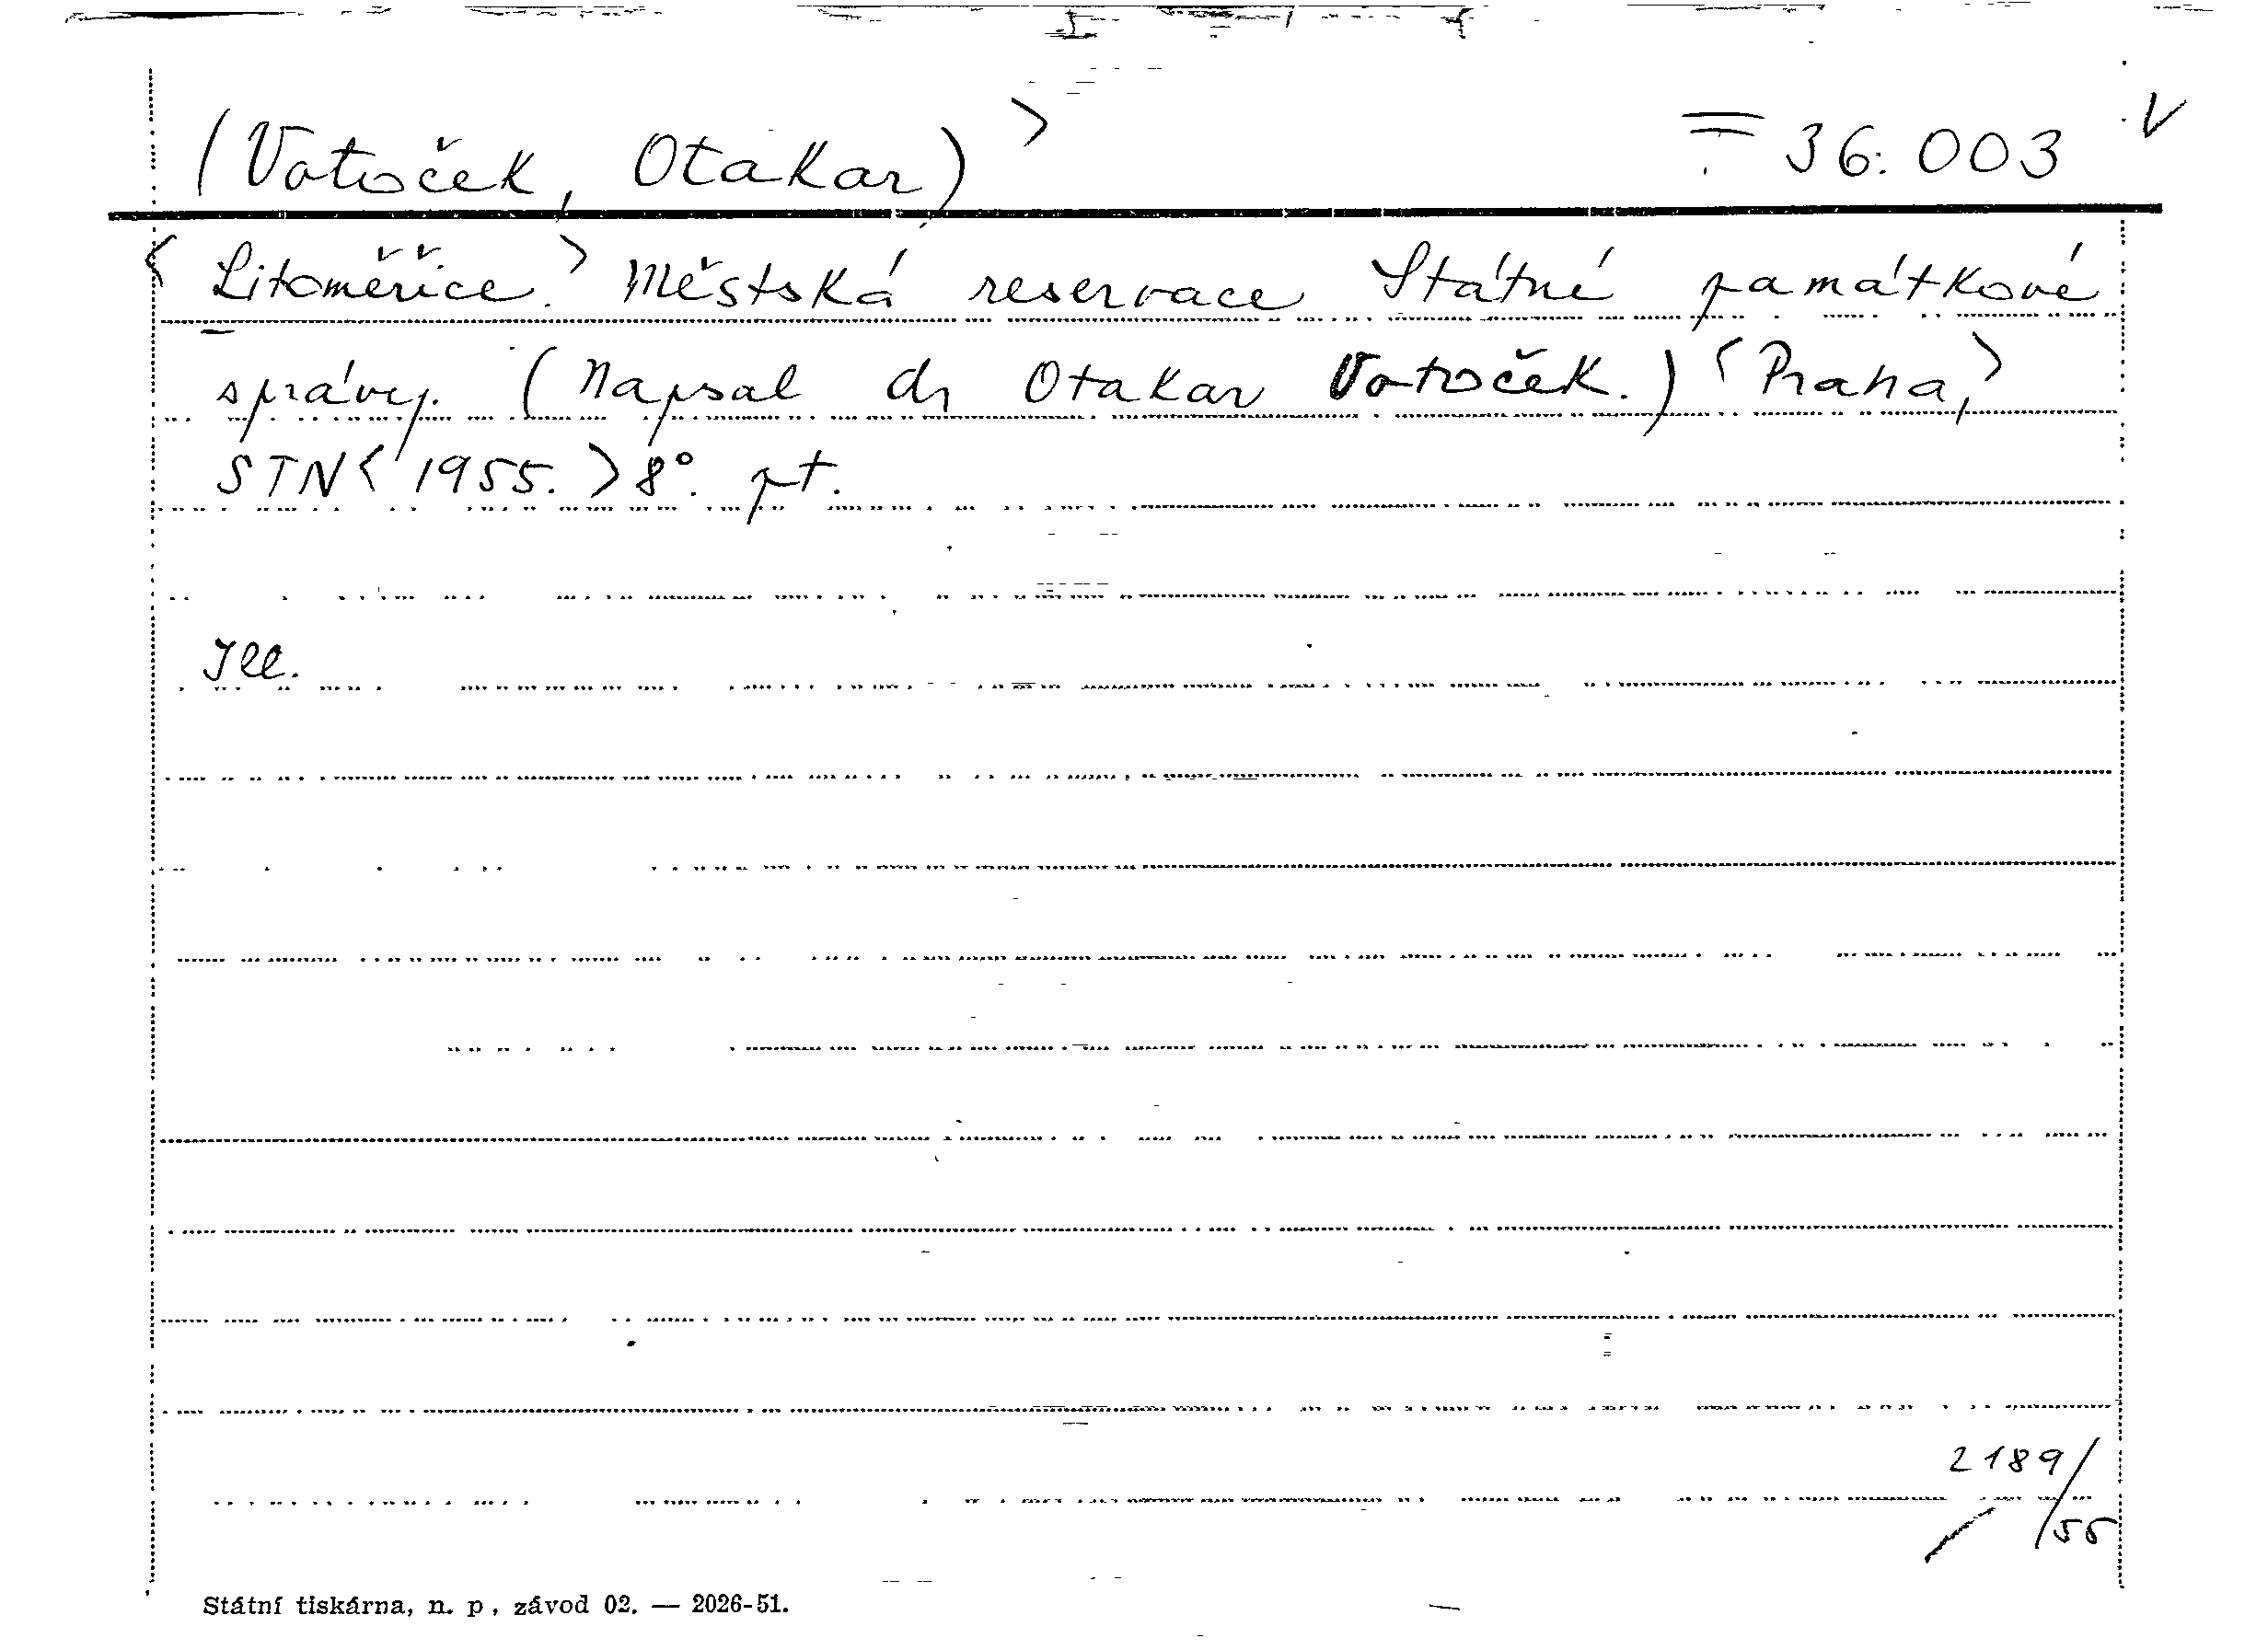 (Votoček, Otakar) > = 36.003 V
< Litoměřice. > Městská reservace Státné památkové
správy. (Napsal dr Otakar Votoček.) < Praha, >
STN < 1955. > 8°. pt.
Ill.
2189/
/55
Státní tiskárna, n. p., závod 02. — 2026-51.